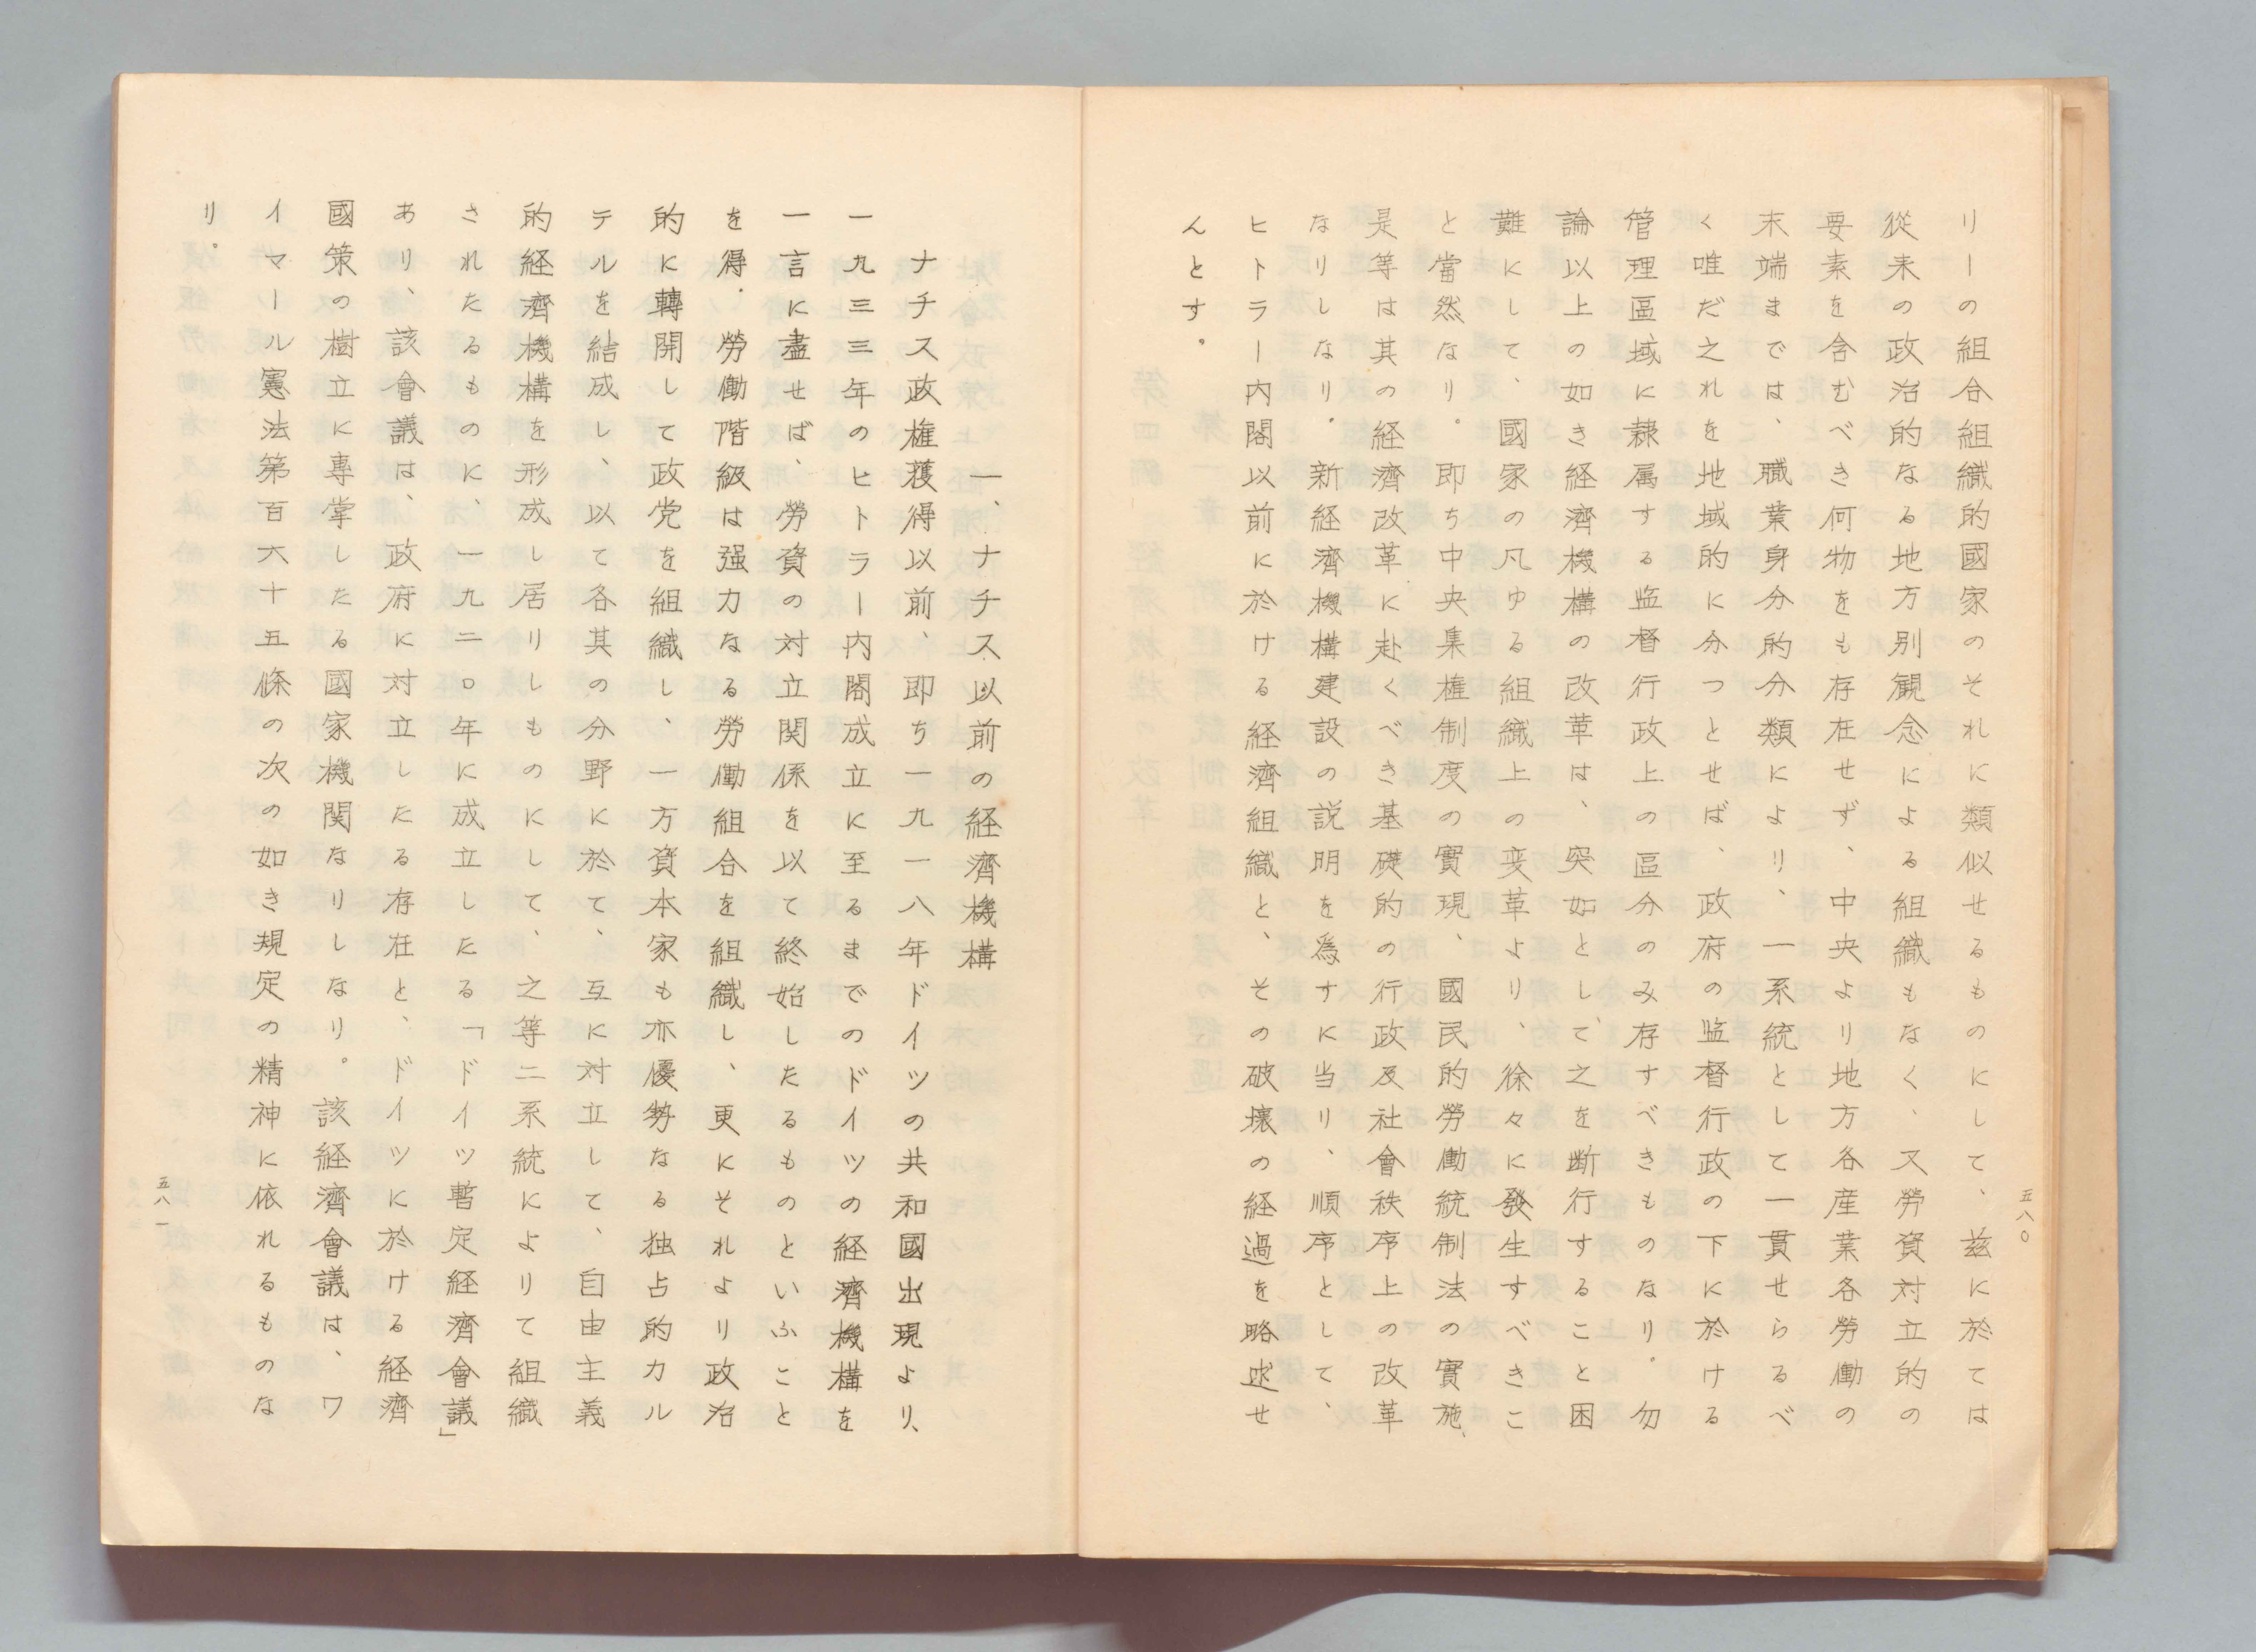 五八〇
リーの組合組織的國家のそれに類似せるものにして、茲に於ては
從来の政治的なる地方別観念による組織もなく、又勞資対立的の
要素を含むべき何物をも存在せず、中央より地方各産業各勞働の
末端までは、職業身分的分類により、一系統として一貫せらるべ
く唯だ之れを地域的に分つとせば、政府の监督行政の下に於ける
管理區域に隷属する监督行政上の區分のみ存すべきものなり。勿
論以上の如き経濟機構の改革は、突如として之を断行すること困
難にして、國家の凡ゆる組織上の変革より、徐々に發生すべきこ
と當然なり。即ち中央集権制度の實現、國民的勞働統制法の實施、
是等は其の経濟改革に赴くべき基礎的の行政及社會秩序上の改革
なりしなり。新経濟機構建設の説明を為すに当り、順序として、
ヒトラー内閣以前に於ける経濟組織と、その破壊の経過を略述せ
んとす。
一、ナチス以前の経濟機構
ナチス政権獲得以前、即ち一九一八年ドイツの共和國出現より、
一九三三年のヒトラー内閣成立に至るまでのドイツの経濟機構を
一言に盡せば、勞資の対立関係を以て終始したるものといふこと
を得．勞働階級は强力なる勞働組合を組織し、更にそれより政治
的に轉開して政党を組織し、一方資本家も亦優勢なる独占的カル
テルを結成し、以て各其の分野に於て、互に対立して、自由主義
的経濟機構を形成し居りしものにして、之等二系統によりて組織
されたるものに、一九二〇年に成立したる「ドイツ暫定経濟會議」
あり、該會議は、政府に対立したる存在と、ドイツに於ける経濟
國策の樹立に専掌したる國家機関なりしなり。該経濟會議は、ワ
イマール憲法第百六十五條の次の如き規定の精神に依れるものな
り。
五八一